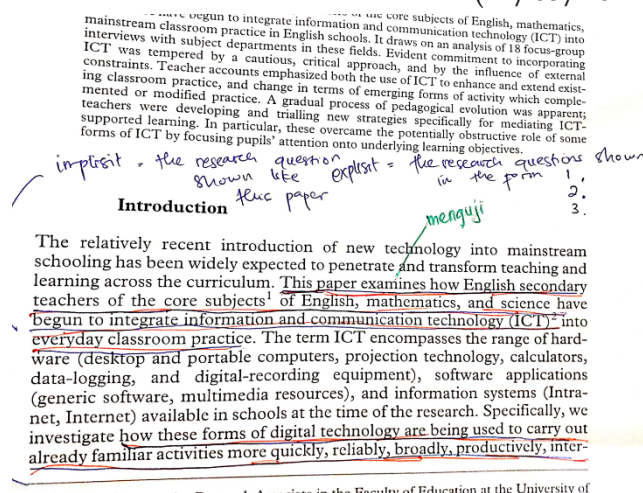 begun to integrate information and communication technology (ICT) into
mainstream classroom practice in English schools. It draws on an analysis of 18 focus-group
interviews with subject departments in these fields. Evident commitment to incorporating
ICT was tempered by a cautious, critical approach, and by the influence of external
constraints. Teacher accounts emphasized both the use of ICT to enhance and extend exist-
ing classroom practice, and change in terms of emerging forms of activity which comple-
mented or modified practice. A gradual process of pedagogical evolution was apparent;
teachers were developing and trialling new strategies specifically for mediating ICT-
supported learning. In particular, these overcame the potentially obstructive role of some
forms of ICT by focusing pupils' attention onto underlying learning objectives.
implisit = the research question
shown like
this paper
explisit = the research questions shown
in the form 1.
2.
3.
Introduction
menguji
The relatively recent introduction of new technology into mainstream
schooling has been widely expected to penetrate and transform teaching and
learning across the curriculum. This paper examines how English secondary
teachers of the core subjects¹ of English, mathematics, and science have
begun to integrate information and communication technology (ICT)² into
everyday classroom practice. The term ICT encompasses the range of hard-
ware (desktop and portable computers, projection technology, calculators,
data-logging, and digital-recording equipment), software applications
(generic software, multimedia resources), and information systems (Intra-
net, Internet) available in schools at the time of the research. Specifically, we
investigate how these forms of digital technology are being used to carry out
already familiar activities more quickly, reliably, broadly, productively, inter-
Research Associate in the Faculty of Education at the University of